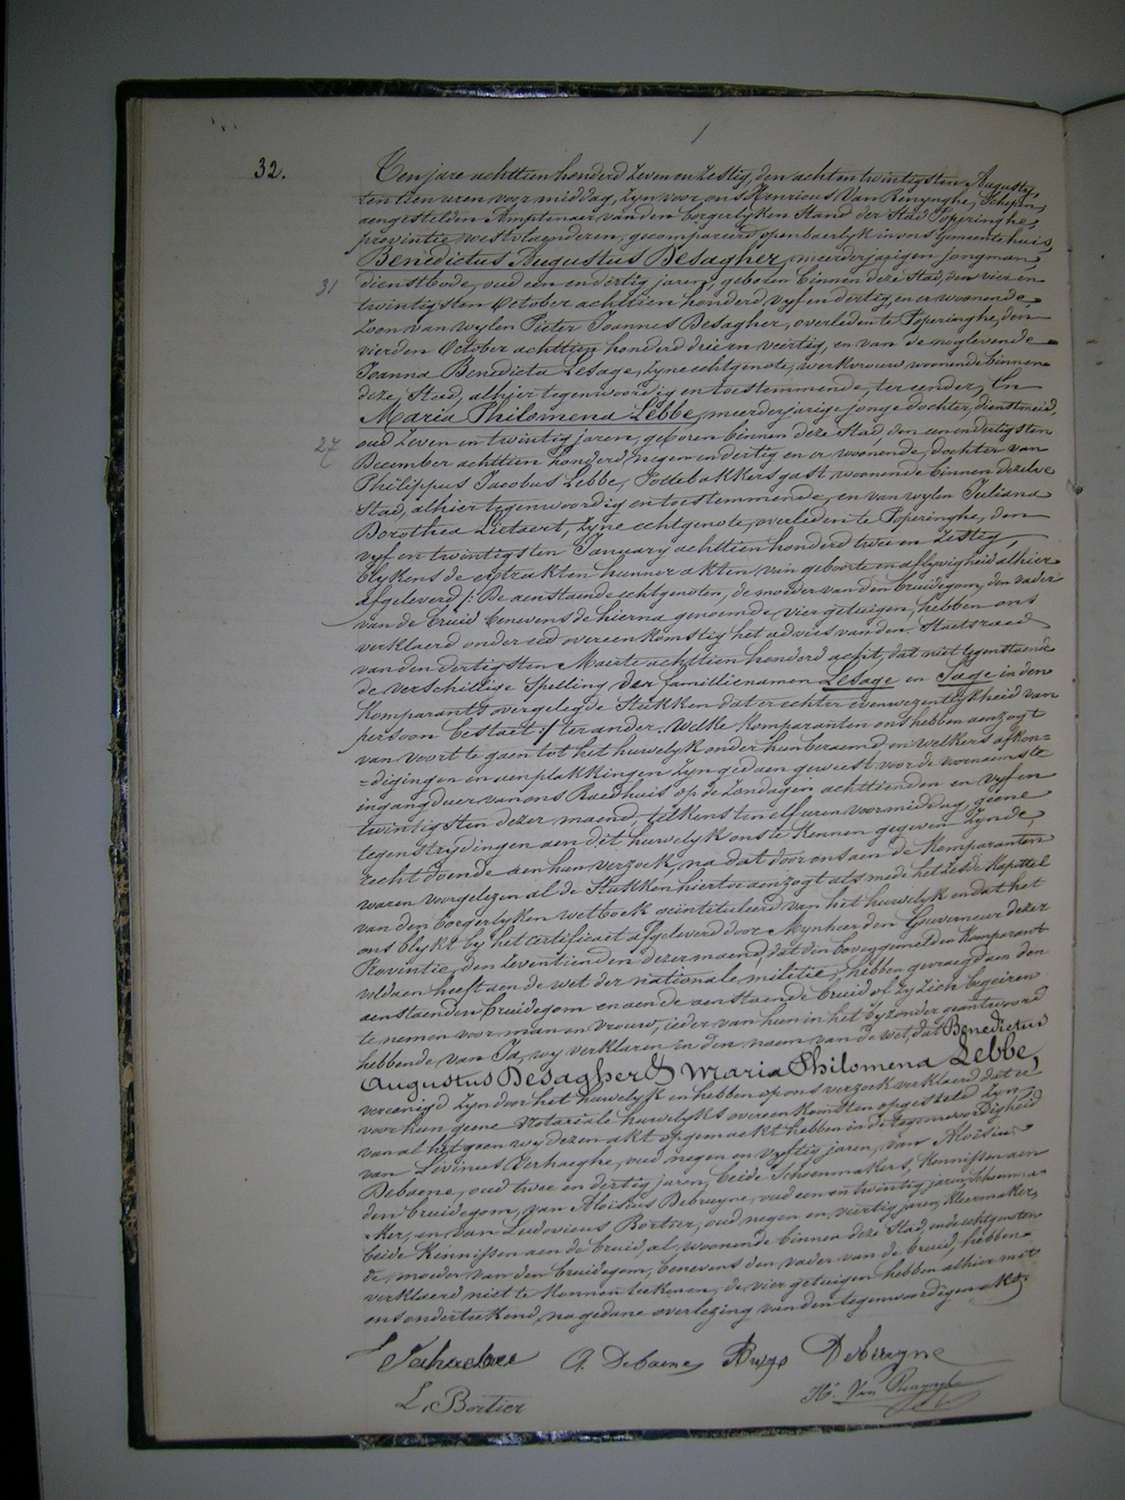 1
32.
Ten jare achttien honderd zeven en zestig, den acht en twintigsten Augusty,
ten tien uren voor middag, zyn voor ons Henricus Van Renynghe, Schepen,
aengestelden Amptenaer van den borgerlyken Stand der Stad Poperinghe,
provintie westvlaenderen, gecompareerd openbaerlyk in ons gemeentehuis,
Benedictus Augustus Desagher, meerderjarigen jongman,
31
dienstbode, oud een en dertig jaren, geboren binnen deze Stad, den vier en
twintigsten October achttien honderd vyf en dertig, en er woonende,
Zoon van wylen Pieter Joannes Desagher, overleden te Poperinghe, den
vierden October achttien honderd drie en veertig, en van de noglevende
Joanna Benedicta Lesage, zyne echtgenote, werkvrouw, woonende binnen
deze Stad, alhier tegenwoordig en toestemmende, ter eender, En
Maria Philomena Lebbe, meerderjarige jonge dochter, dienstmeid,
27
oud zeven en twintig jaren, geboren binnen deze Stad, den een en dertigsten
December achttien honderd negen en dertig en er woonende, dochter van
Philippus Jacobus Lebbe, Pottebakkersgast, woonende binnen dezelve
Stad, alhier tegenwoordig en toestemmende, en van wylen Juliana
Dorothea Lietaert, zyne echtgenote, overleden te Poperinghe, den
vyf en twintigsten January achttien honderd twee en zestig,
blykens de extrakten hunner akten van geboorte en aflyvigheid alhier
afgeleverd /: De aenstaende echtgenoten, de moeder van den bruidegom, den vader
van de bruid benevens de hierna genoemde vier getuigen, hebben ons
verklaerd onder eed overeenkomstig het advies van den Staetsraed
van den dertigsten Maerte achttien honderd acht, dat niet tegenstaende
de verschillige Spelling der famillienamen Lesage en Sage in den
Komparant's overgelegde Stukken dat er echter evenwezentlykheid van
persoon bestaet :/ ter ander. Welke Komparanten ons hebben aenzogt
van voort te gaen tot het huwelyk onder hun beraemd en welkers afkon=
=digingen en aenplakkingen zyn gedaen geweest voor de voornaemste
ingangdeur van ons Raedhuis op de Zondagen achttienden en vyf en
twintigsten dezer maend, telkens ten elf uren voormiddag, geene
tegenstrydingen aen dit huwelyk ons te kennen gegeven zynde,
recht doende aen hun verzoek, na dat door ons aen de Komparanten
waren voorgelezen al de Stukken hiertoe aenzogt als mede het zesde Kapittel
van den borgerlyken wetboek geïntituleerd van het huwelyk en dat het
ons blykt by het certificaet afgeleverd door Mynheer den Gouverneur dezer
Provintie, den zeventienden dezer maend, dat den bovengemelden Komparant
voldaen heeft aen de wet der nationale militie, hebben gevraegd aen den
aenstaenden bruidegom en aen de aenstaende bruid of zy zich begeiren
te nemen voor man en vrouw, ieder van hun in het byzonder geantwoord
hebbende van Ja, wy verklaren in den naem van de wet, dat Benedictus
Augustus Desagher & Maria Philomena Lebbe,
vereenigd zyn door het huwelyk en hebben op ons verzoek verklaerd dat er
voor hun geene Notariale huwelyks overeenkomsten opgesteld zyn
van al het geen wy dezen akt opgemaekt hebben in de tegenwoordigheid
van Livinus Verhaeghe, oud negen en vyftig jaren, van Aloïsius
Debaene, oud twee en dertig jaren, beide Schoenmakers, Kennissen aen
den bruidegom, van Aloïsius Debruyne, oud een en twintig jaren, schoenma=
=ker, en van Ludovicus Bortier, oud negen en veertig jaren, kleermaker,
beide Kennissen aen de bruid, al woonende binnen deze Stad, en de echtgenoten
de moeder van den bruidegom, benevens den vader van de bruid, hebben
verklaerd niet te konnen teekenen, de vier getuigen hebben alhier met
ons onderteekend, na gedane overlezing van den tegenwoordigen akt.
A. Debaene Debruyne
L. Bortier